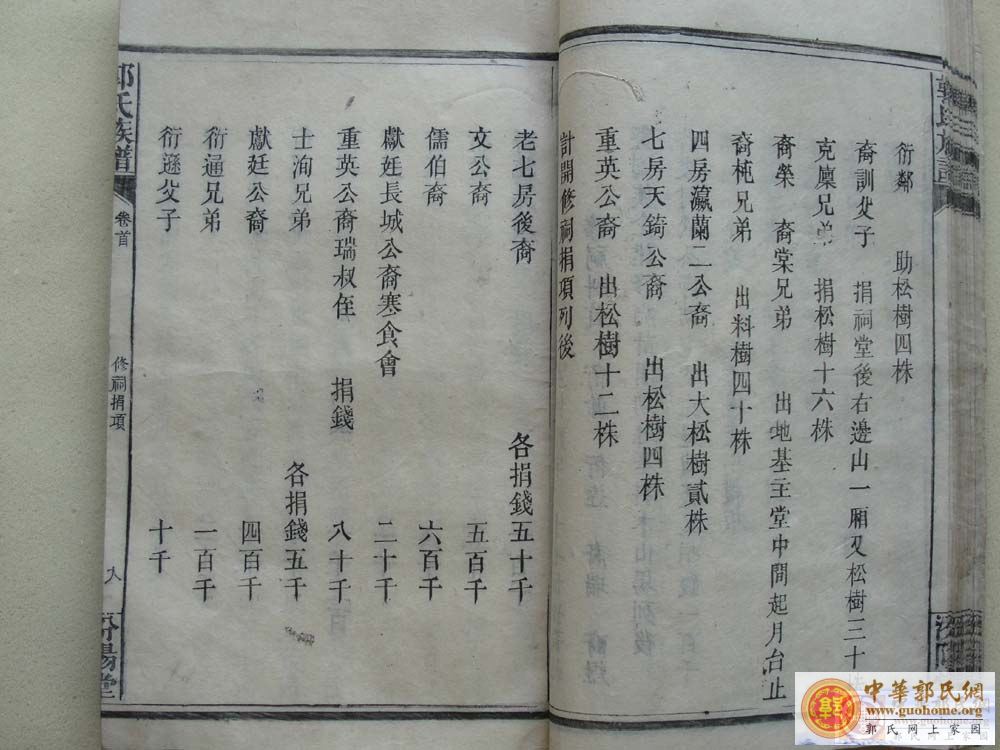 衍鄰　助松樹四株
裔訓父子　捐祠堂後右邊山一厢又松樹三十
克廩兄弟　捐松樹十六株
裔榮　裔棠兄弟　出地基主堂中間起月台止
裔杶兄弟　出料樹四十株
四房瀛蘭二公裔　出大松樹貳株
七房天錡公裔　出松樹四株
重英公裔　出松樹十二株
計開修祠捐項列後
老七房後裔　各捐錢五十千
文公裔　五百千
儒伯裔　六百千
獻廷長城公裔寒食會　二十千
重英公裔瑞叔侄　捐錢　八十千
士洵兄弟　各捐錢五千
獻廷公裔　四百千
衍通兄弟　一百千
衍遜父子　十千
郭氏族譜　卷首　修祠捐項　八　汾陽堂
中華郭氏網
www.guohome.org
郭氏网上家园